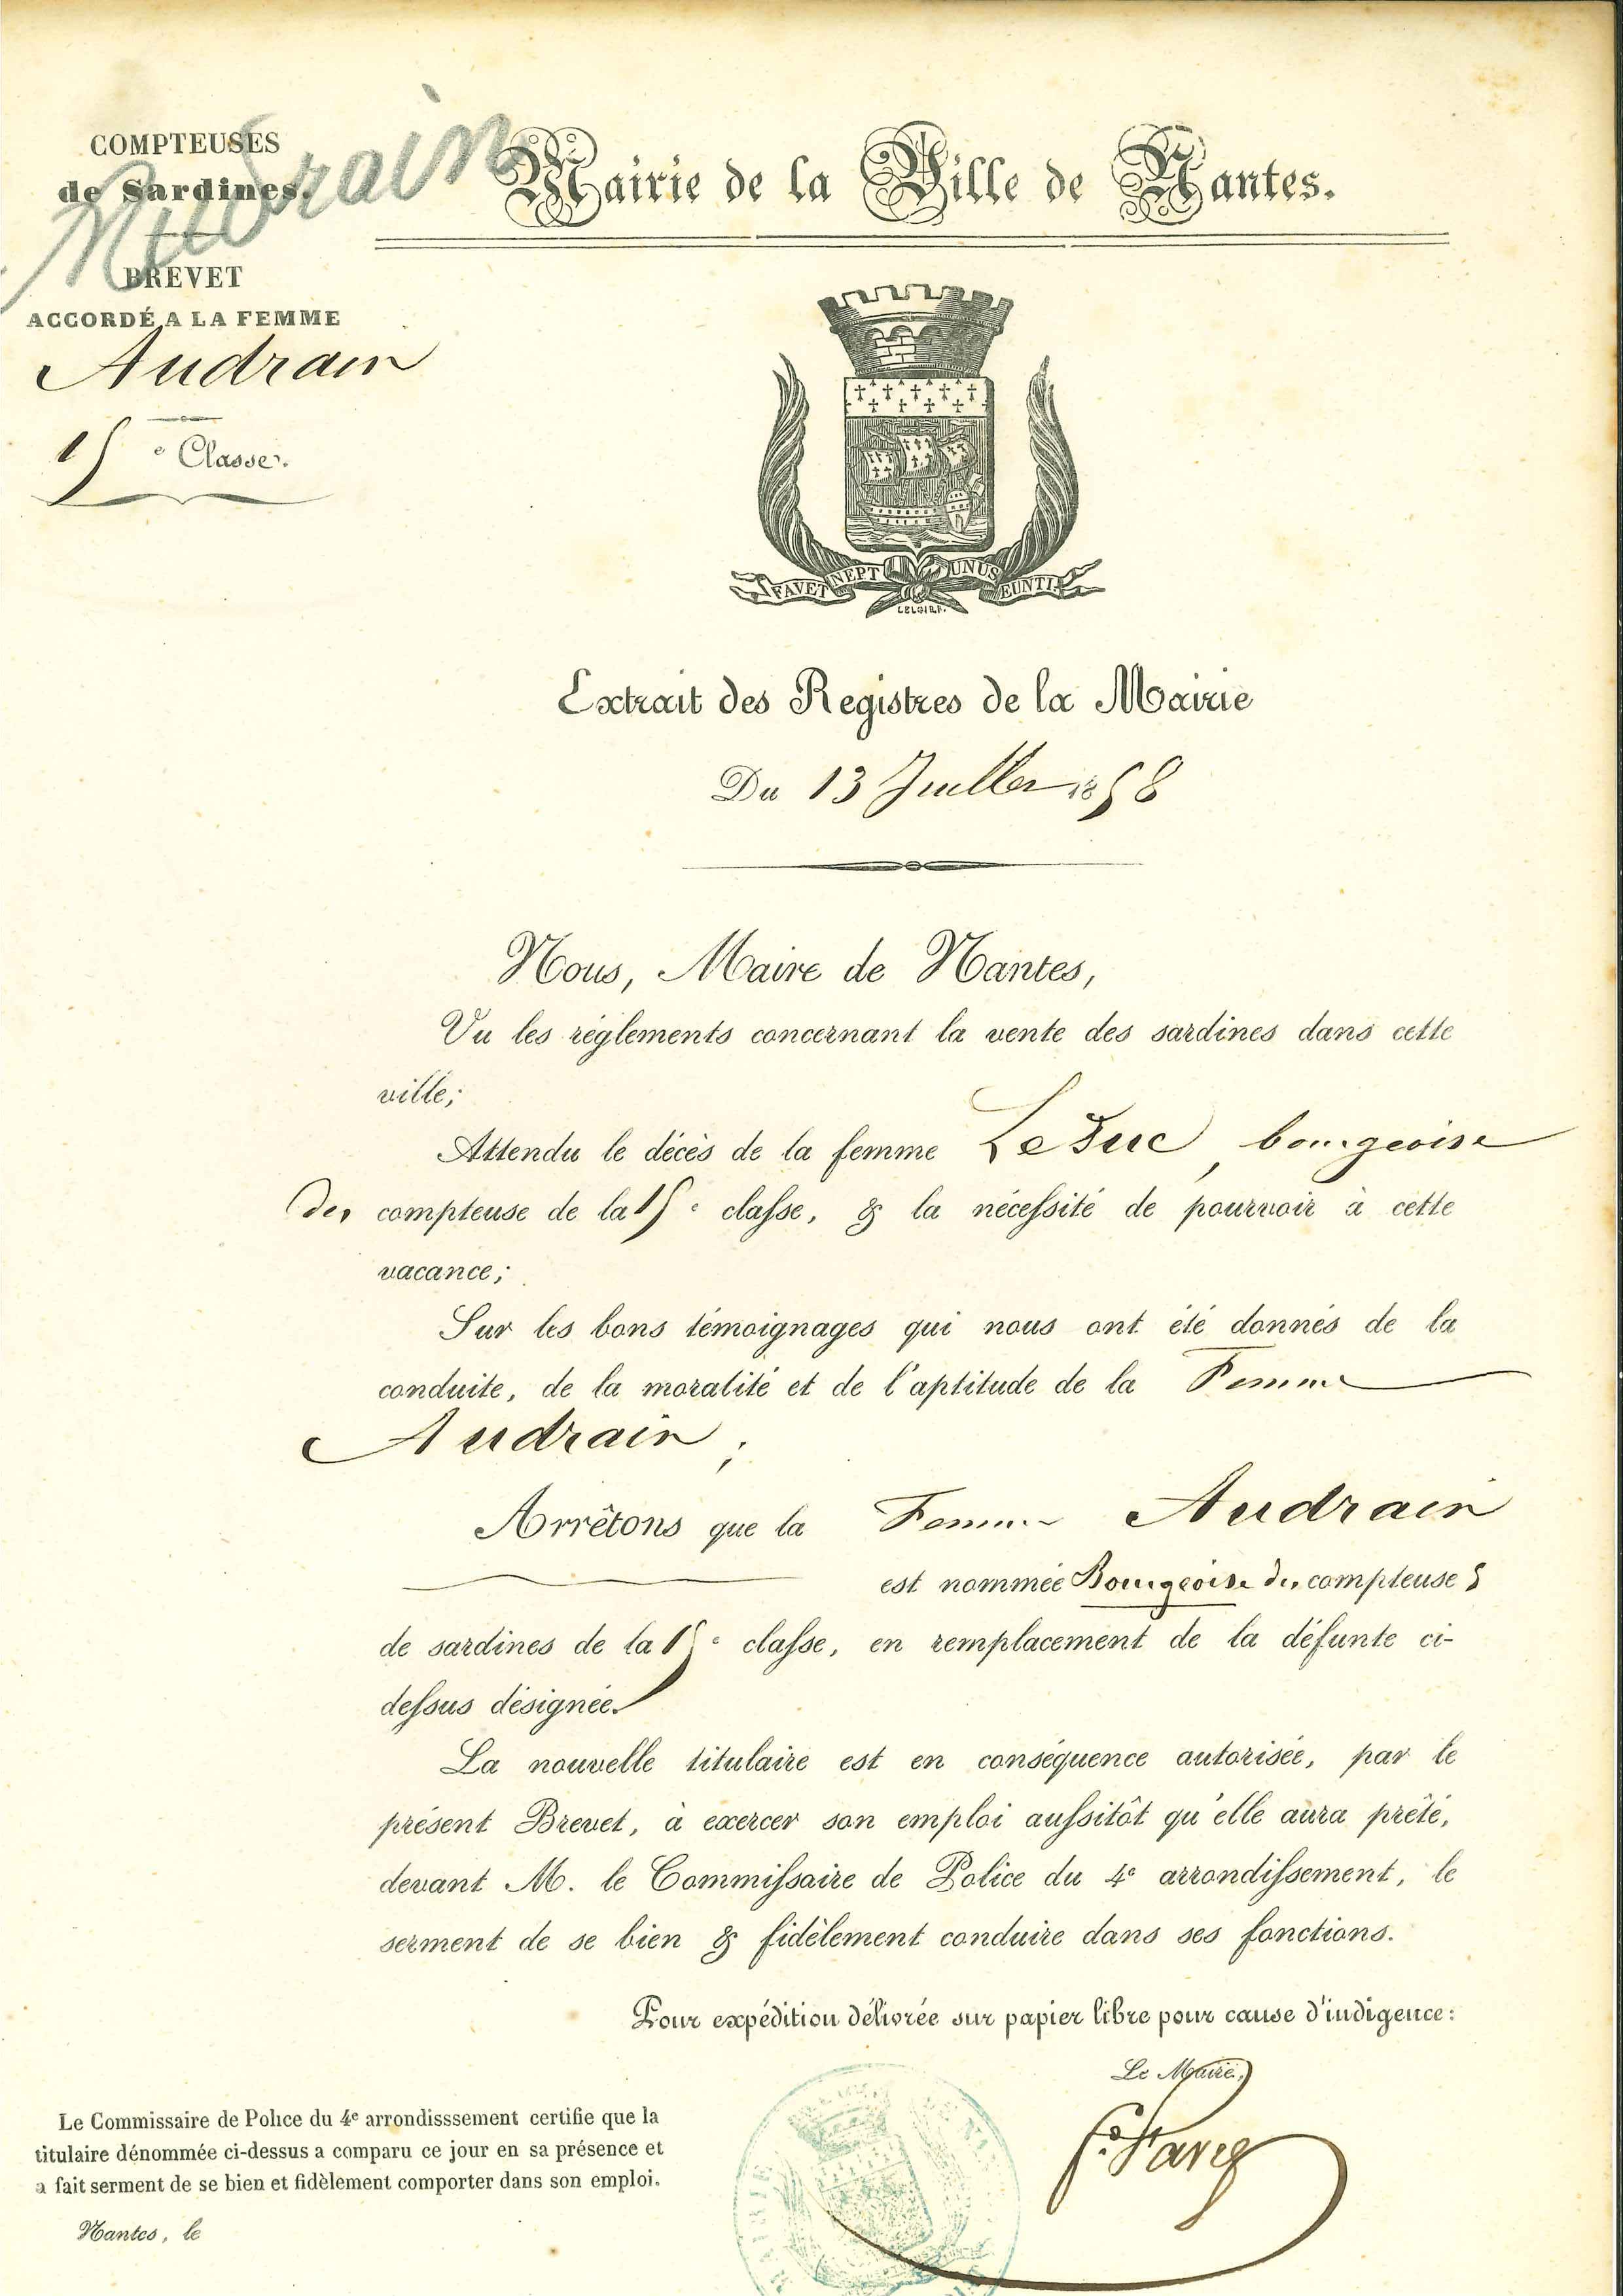 Audrain
COMPTEUSES
de Sardines.
BREVET
ACCORDÉ A LA FEMME
Audrain
15e Classe.
Mairie de la Ville de Nantes.
FAVET NEPTUNUS EUNTI
Extrait des Registres de la Mairie
Du 13 Juillet 1858
Nous, Maire de Nantes,
Vu les réglements concernant la vente des sardines dans cette
ville;
Attendu le décès de la femme Leduc, bourgeoise
des compteuse de la 15e classe, & la nécessité de pourvoir à cette
vacance;
Sur les bons témoignages qui nous ont été donnés de la
conduite, de la moralité et de l'aptitude de la Femme
Audrain;
Arrêtons que la Femme Audrain
est nommée Bourgeoise des compteuses
de sardines de la 15e classe, en remplacement de la défunte ci-
dessus désignée.
La nouvelle titulaire est en conséquence autorisée, par le
présent Brevet, à exercer son emploi aussitôt qu'elle aura prêté,
devant M. le Commissaire de Police du 4e arrondissement, le
serment de se bien & fidèlement conduire dans ses fonctions.
Pour expédition délivrée sur papier libre pour cause d'indigence:
Le Maire,
Le Commissaire de Police du 4e arrondisssement certifie que la
titulaire dénommée ci-dessus a comparu ce jour en sa présence et
a fait serment de se bien et fidèlement comporter dans son emploi.
Nantes, le